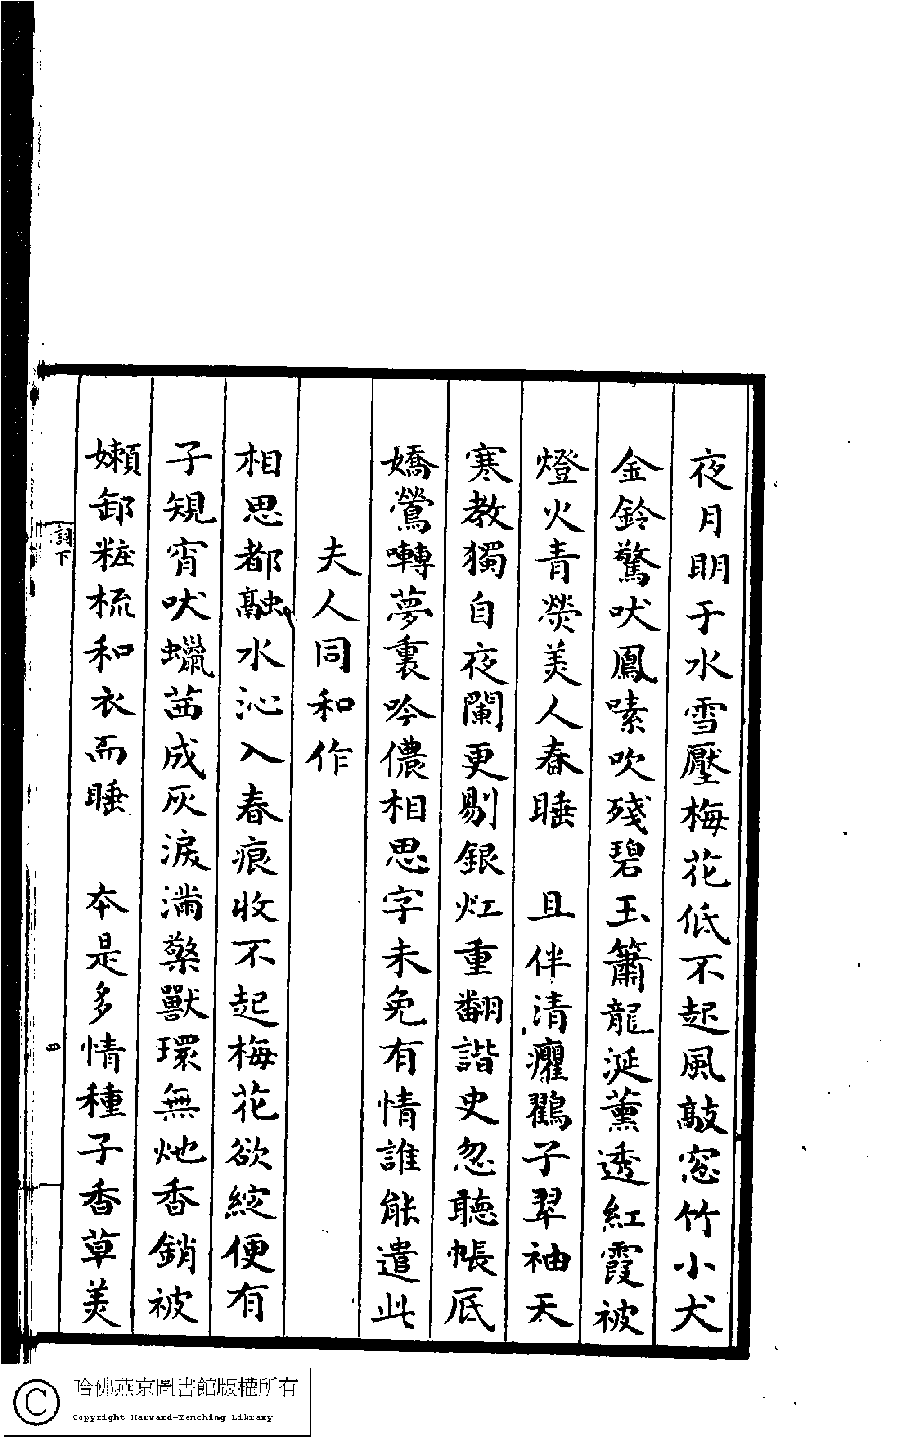 夜月明于水雪壓梅花低不起風敲窓竹小犬
金鈴驚吠鳳嗉吹殘碧玉簫龍涎薰透紅霞被
燈火青熒美人春睡　且伴清癯鸛子翠袖天
寒教獨自夜闌更剔銀缸重翻諧史忽聽帳底
嬌鶯囀夢裏吟儂相思字未免有情誰能遣此
夫人同和作
相思都融水沁入春痕收不起梅花欲綻便有
子規宵吠蠟茁成灰淚滿檠獸環無灺香銷被
嬾卸粧梳和衣而睡　本是多情種子香草美
詞下
哈佛燕京圖書館版權所有
Copyright Harvard-Yenching Library